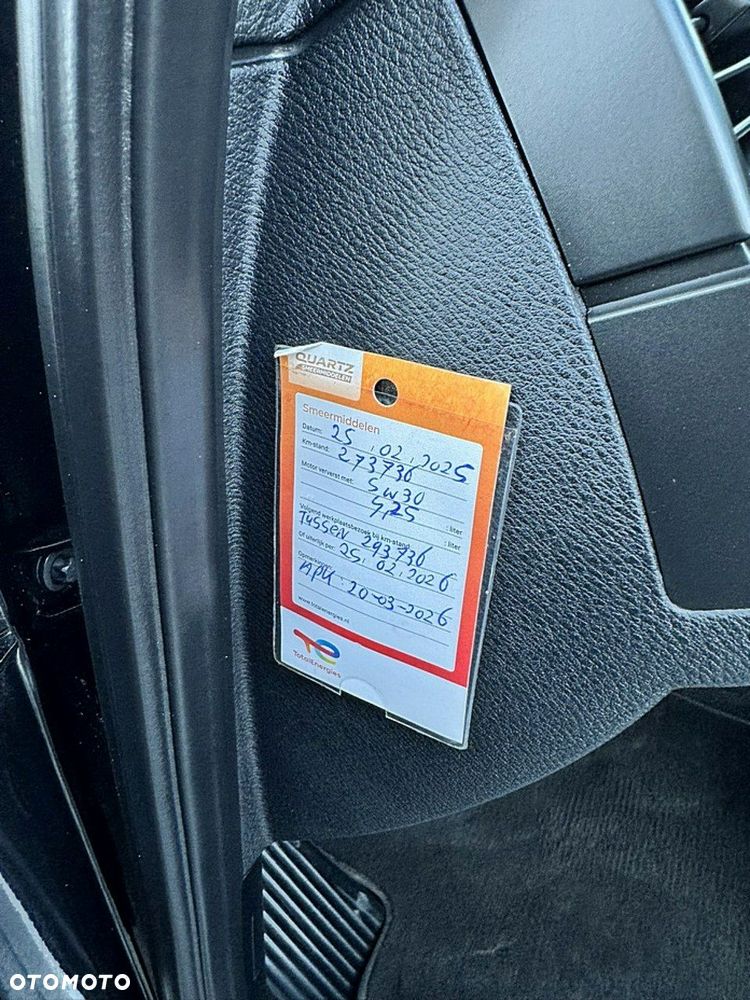 QUARTZ
SMEERMIDDELEN
Smeermiddelen
Datum: 25.02.2025
Km-stand: 273736
Motor ververst met: 5W30
4,25 : liter
: liter
Volgend werkplaatsbezoek bij km-stand:
TUSSEN 293736
Of uiterlijk per: 25.02.2026
Opmerkingen:
APK: 20-03-2026
www.totalenergies.nl
TotalEnergies
OTOMOTO